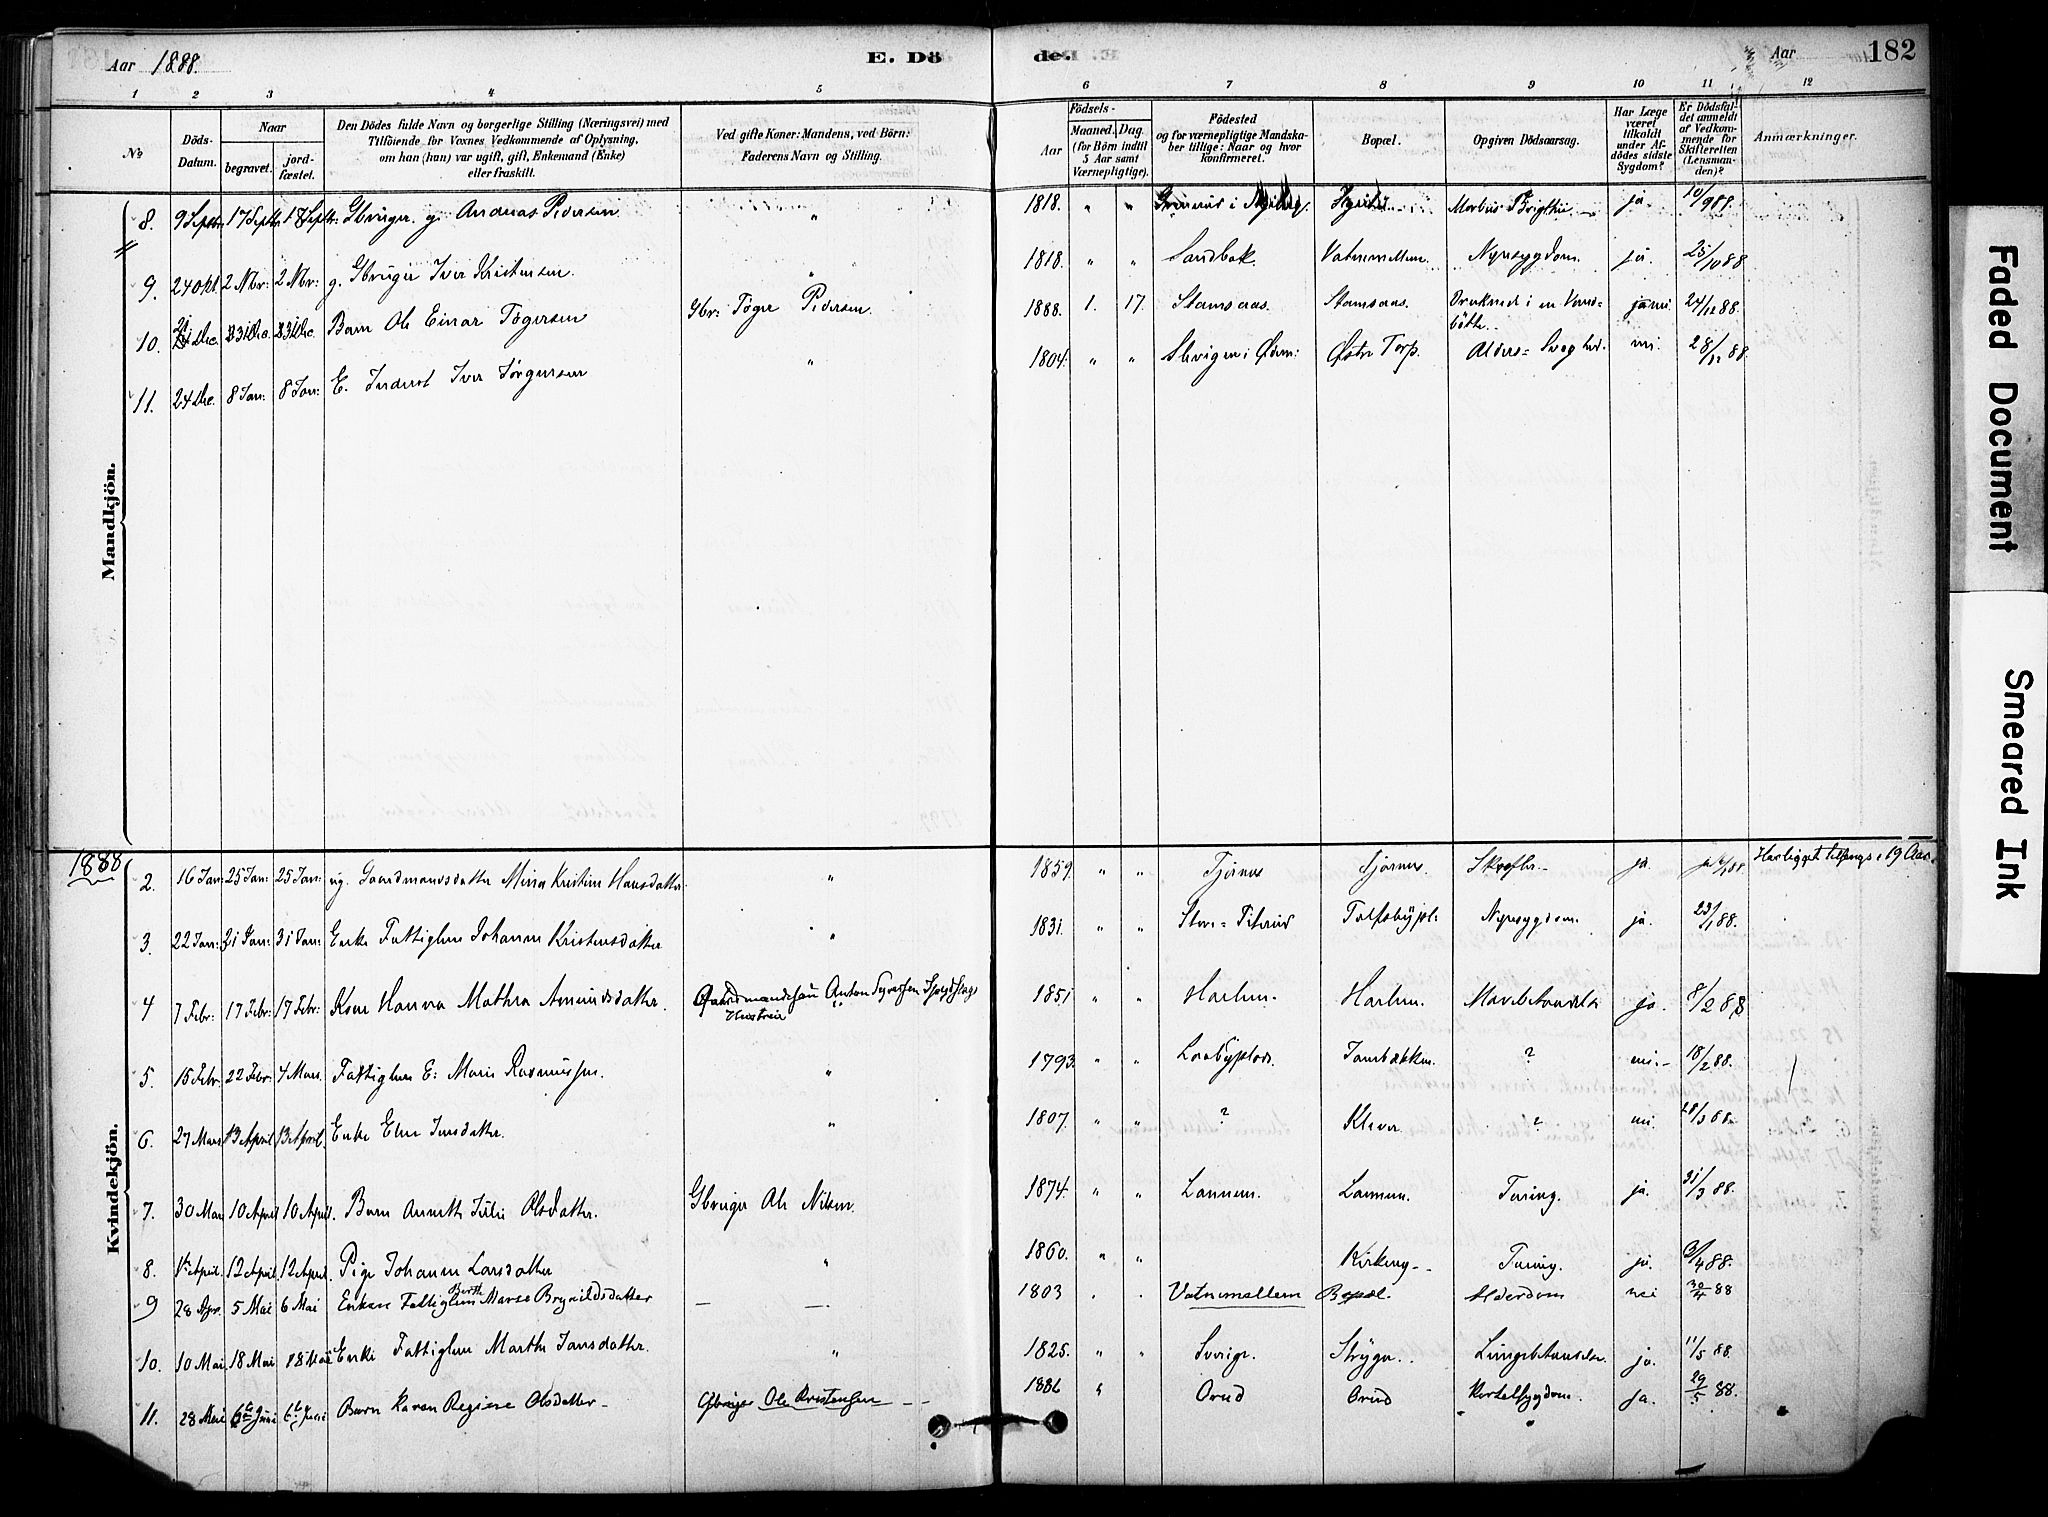 Aar 1888. E. Dö de. Aar 182
1 2 3 4 5 6 7 8 9 10 11 12
No Döds-Datum. Naar begravet. jord-fæstet. Den Dödes fulde Navn og borgerlige Stilling (Næringsvei) med Tilföiende for Voxnes Vedkommende af Oplysning, om han (hun) var ugift, gift, Enkemand (Enke) eller fraskilt. Ved gifte Koner: Mandens, ved Börn: Faderens Navn og Stilling. Födsels- Aar Maaned. Dag. (for Börn indtil 5 Aar samt Værnepligtige). Födested og for værnepligtige Mandskaber tillige: Naar og hvor Konfirmeret. Bopæl. Opgiven Dödsaarsag. Har Læge været tilkaldt under Afdödes sidste Sygdom? Er Dödsfaldet anmeldt af Vedkommende for Skifteretten (Lensmanden)? Anmærkninger.
Mandkjön.
8. 9 Septr. 17 Septr. 17 Septr: Gbruger. g. Andreas Pedersen " 1818. " " Morbus Brigthii ja. 10/9 88.
9. 24 Okt. 2 Nbr: 2 Nbr: g. Gbruger Iver Kristensen. " 1818. " " Sandbak. Vatnemellem. Nyresygdom. ja. 25/10 88
10. 21 Dec. 31 Dec. 31 Dec. Barn Ole Einar Tøgersen Gbr: Tøger Pedersen. 1888. 1. 17. Stamsaas. Stamsaas. Druknede i en Vandbøtte. 24/12 88.
11. 24 Dec. 8 Jan: 8 Jan: E. Inderst Iver Jørgensen " 1804. " " Østre Torp. Alders=Svaghed. nei. 28/12 88.
1888
Kvindekjön.
2. 16 Jan: 25 Jan: 25 Jan: ug. Gaardmandsdatter Mina Kristine Hansdatter. " 1859. " " Tjernes Tjernes. Skrofler. ja. Har ligget tilsengs i 19 Aar.
3. 22 Jan: 31 Jan: 31 Jan: Enke Fattiglem Johanne Kristensdatter " 1831. " " Nyresygdom. ja. 23/1 88.
4 7 Febr: 17 Febr: 17 Febr: Kone Hanna Mathea Amundsdatter. Gaardmandsøn Anton Hustru 1851 " " Harlem. Harlem. ja. 8/2 88
5. 15 Febr. 22 Febr: 4 Mars. Fattiglem E: Marie Rasmussen. " 1793. " " ? nei. 18/2 88.
6. 27 Mars 13 April. 13 April. Enke Elen Jensdatter. " 1807. " " ? Klever. ? nei. 28/3 88.
7. 30 Mar 10 April 10 April. Barn Annette Julie Olsdatter. Gbruger Ole Nilsen. 1874. " " Lannem. Lannem. Tæring. ja. 31/3 88.
8. 1ste April. 12 April 12 April. Pige Johanne Larsdatter " 1860. " " Kirkeng. Tæring. ja. 3/4 88.
9 28 Apr. 5 Mai 6 Mai Enken Fattiglem Berthe Maren Brynildsdatter — —. 1803 . . Vatnemellem Bopæl. Alderdom nei 30/4 88
10. 10 Mai 18 Mai 18 Mai Enke Fattiglem Marthe Jansdatter. " 1825. " " Sverige. Lungebetændelse. ja. 11/5 88.
11. 28 Mai 6te Juni 6te Juni Barn Karen Regine Olsdatter Gbruger Ole Kristensen 1886 " Orud Orud Kirtelsygdom. Ja. 29/5 88.
Faded Document
Smeared Ink